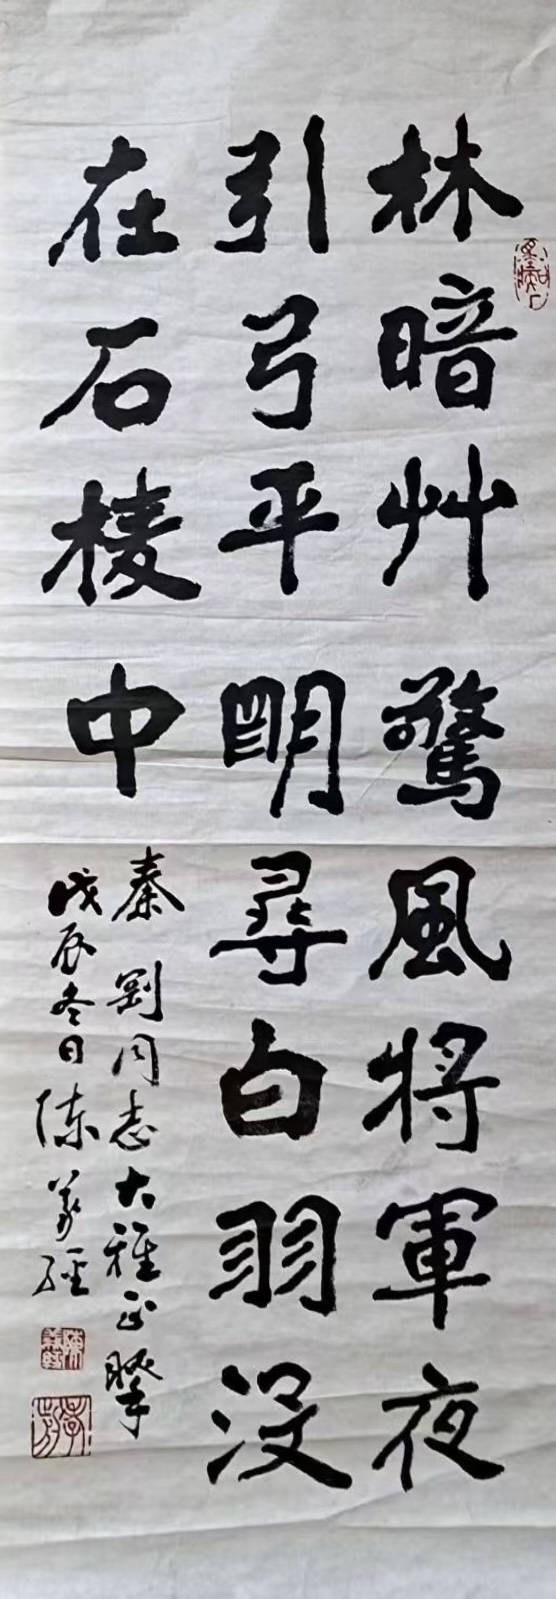 林暗艸驚風將軍夜
引弓平明尋白羽没
在石棱中
秦剛同志大雅正擘
戊辰冬日陳義經